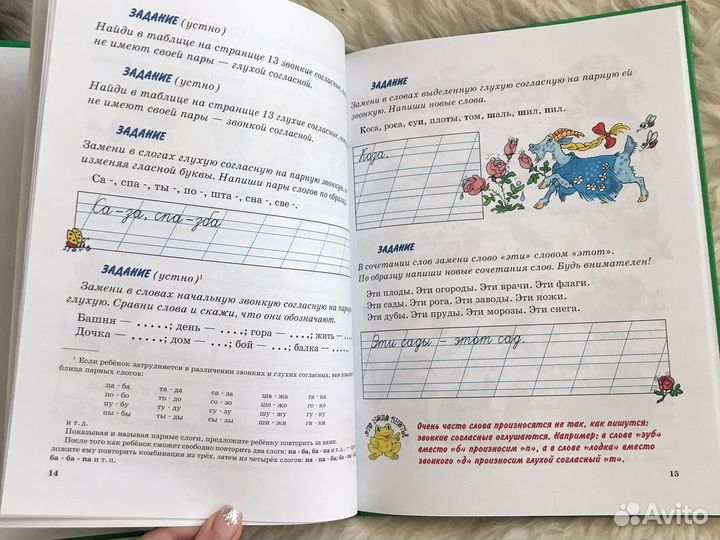 ЗАДАНИЕ (устно)
Найди в таблице на странице 13 звонкие согласные,
не имеют своей пары — глухой согласной.
ЗАДАНИЕ (устно)
Найди в таблице на странице 13 глухие согласные,
не имеют своей пары — звонкой согласной.
ЗАДАНИЕ
Замени в слогах глухую согласную на парную звонкую, не
изменяя гласной буквы. Напиши пары слогов по образцу.
Са -, спа -, ты -, по -, шта -, сна -, све -.
Са – за, спа – зба
ЗАДАНИЕ (устно)¹
Замени в словах начальную звонкую согласную на парную
глухую. Сравни слова и скажи, что они обозначают.
Башня — .....; день — ....; гора — ....; жить — ....
Дочка — .....; дом — ...; бой — ...; балка — .....
¹ Если ребёнок затрудняется в различении звонких и глухих согласных, вам
блица парных слогов:
па - ба та - да са - за ша - жа га - ка
по - бо то - до со - зо шо - жо го - ко
пу - бу ту - ду су - зу шу - жу гу - ку
пы - бы ты - ды сы - зы ши - жи ги - ки
и т. д.
Показывая и называя парные слоги, предложите ребёнку повторить за вами.
После того как ребёнок сможет свободно повторить два слога: па - ба, ба - па и т. п.,
ложите ему повторить комбинации из трёх, затем из четырёх слогов: па - па - ба; ба -
ба - ба - па и т. п.
14
ЗАДАНИЕ
Замени в словах выделенную глухую согласную на парную ей
звонкую. Напиши новые слова.
Коса, роса, суп, плоты, том, шаль, шил, пил.
Коза,
ЗАДАНИЕ
В сочетании слов замени слово «эти» словом «этот».
По образцу напиши новые сочетания слов. Будь внимателен!
Эти плоды. Эти огороды. Эти врачи. Эти флаги.
Эти сады. Эти рога. Эти заводы. Эти ножи.
Эти дубы. Эти пруды. Эти морозы. Эти снега.
Эти сады – этот сад.
это надо знать!
Очень часто слова произносятся не так, как пишутся:
звонкие согласные оглушаются. Например: в слове «зуб»
вместо «б» произносим «п», а в слове «лодка» вместо
звонкого «д» произносим глухой согласный «т».
15
Avito